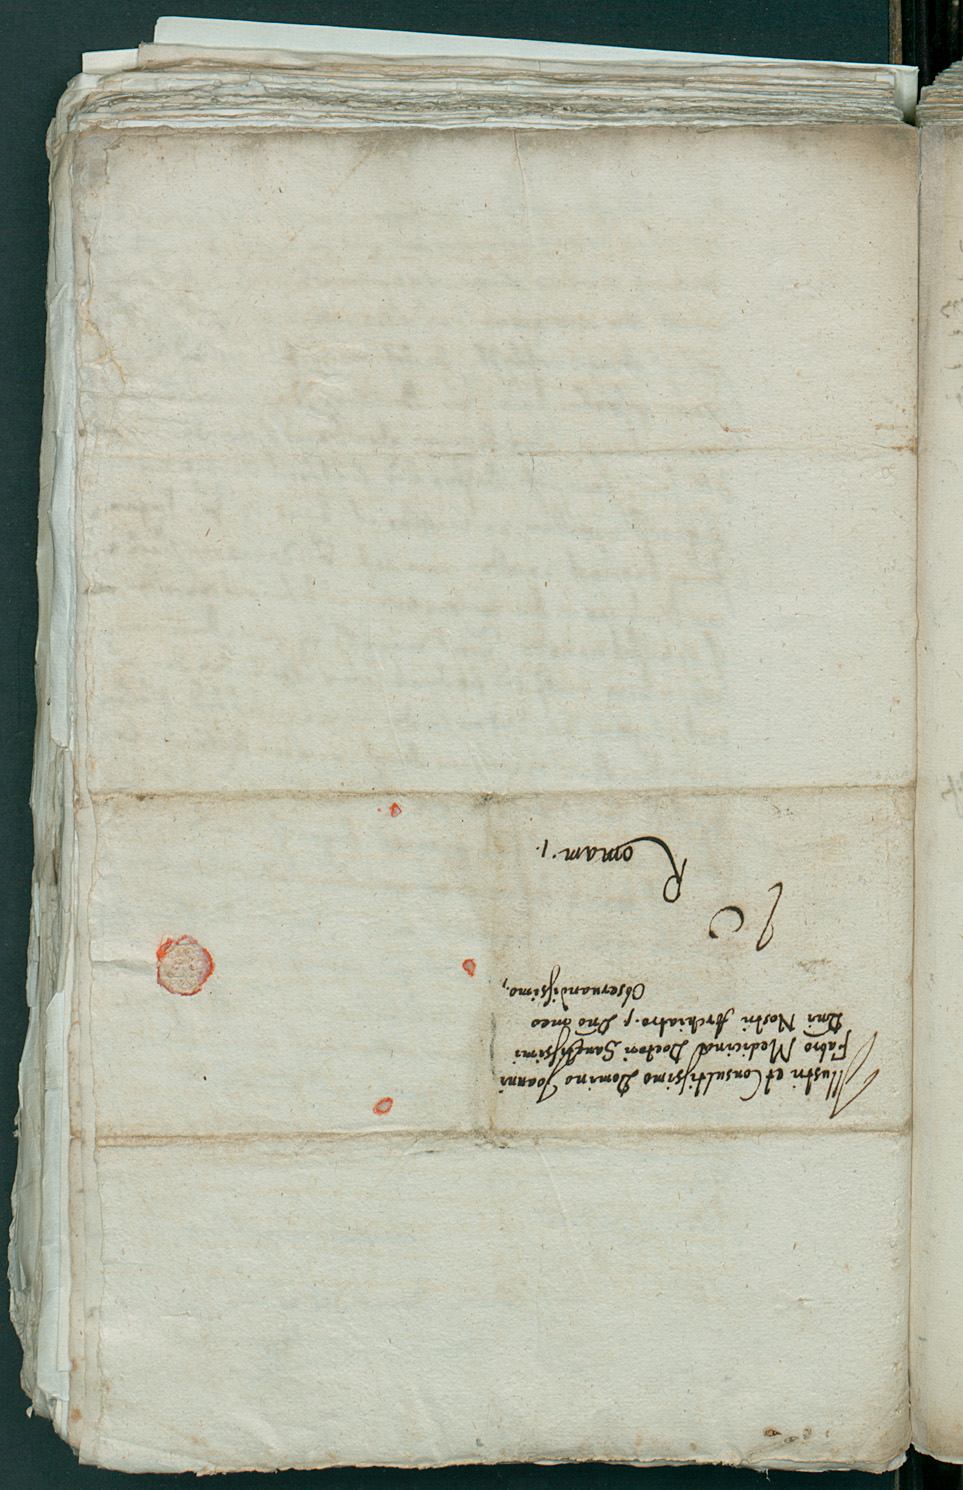 Illustri et Consultissimo Domino Joanni
Fabro Medicinæ Doctori Sanctissimi
Dni Nostri Archiatro, Dno meo
Obseruandissimo,
Romam.